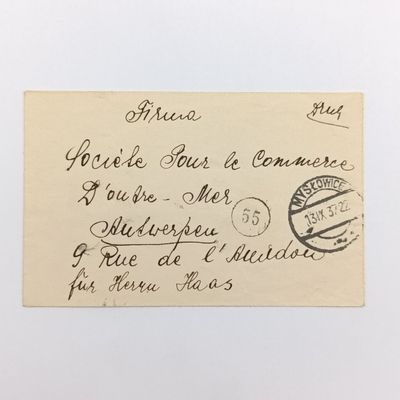 Firma
Druk
Sociète Pour le Commerce
D'outre-Mer
Antwerpen
9 Rue de l'Amidon
für Herrn Haas
55
MYSŁOWICE
13.IX.37.22